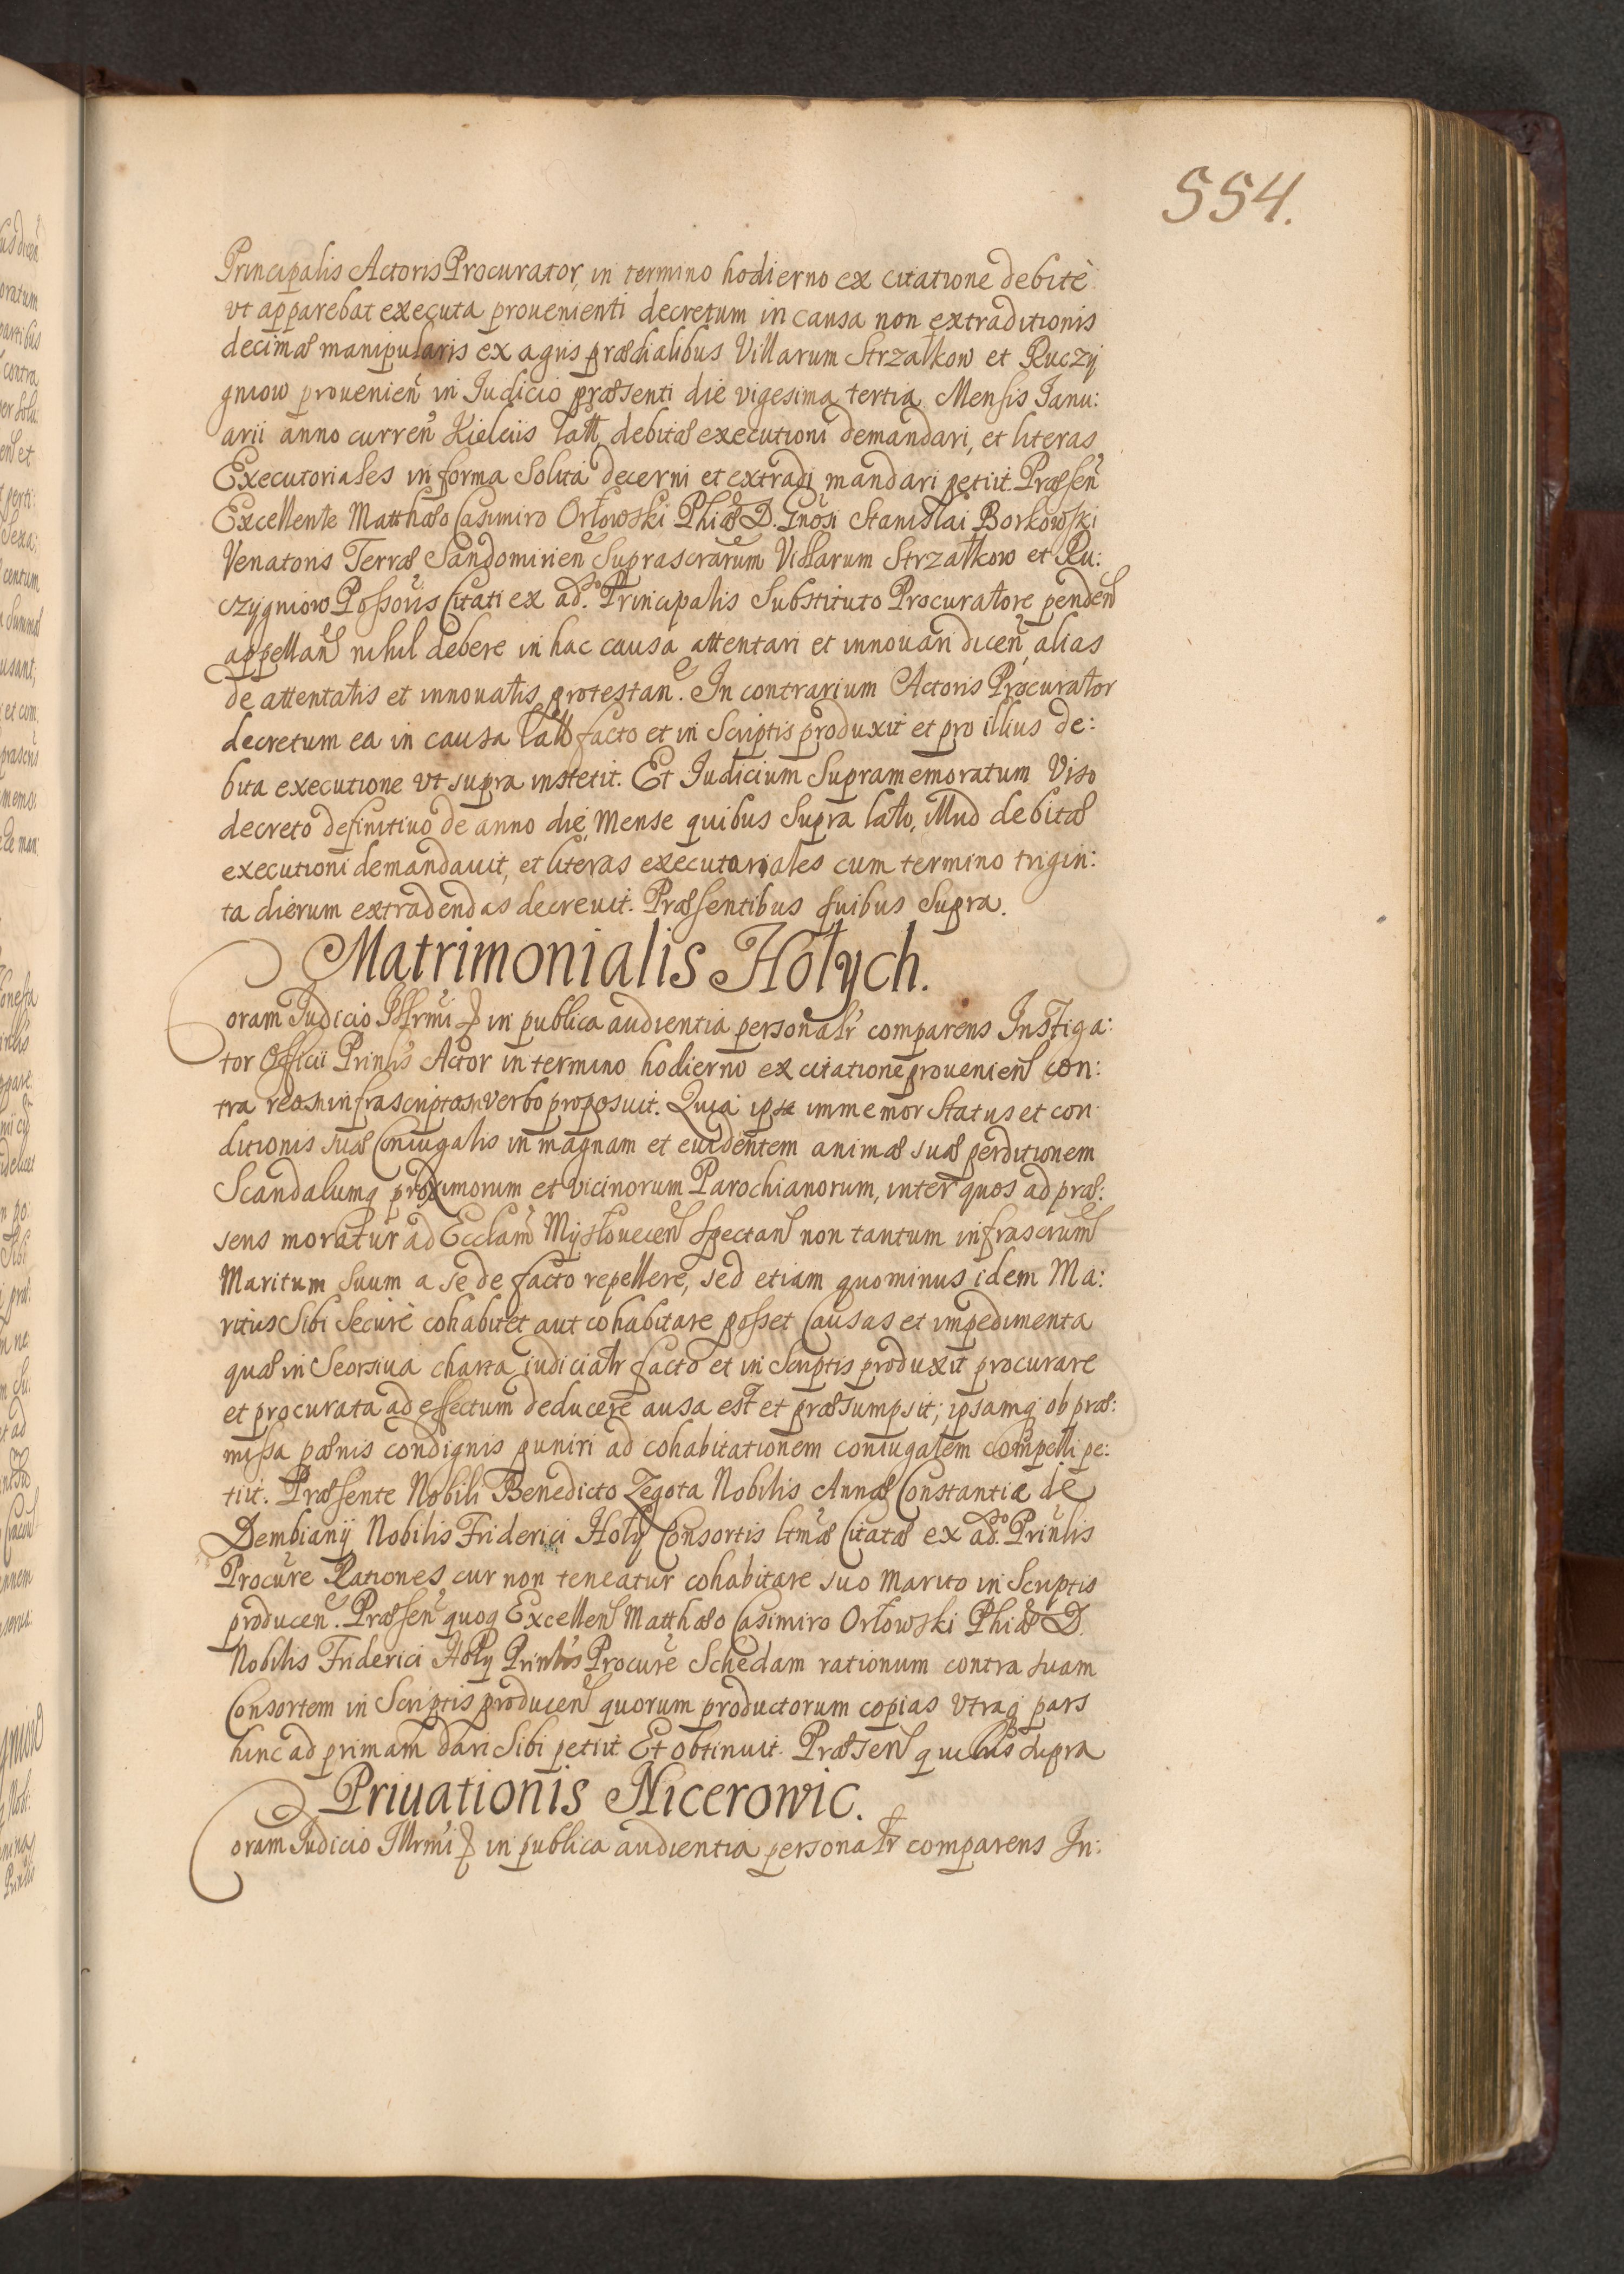 554.
Principalis Actoris Procurator, in termino hodierno ex citatione debitè
vt apparebat executa prouenienti decretum in causa non extraditionis
decimæ manipularis ex agris prædialibus Villarum Strzałkow et Ruczy
gniow prouenien̄ in Iudicio præsenti die vigesima tertia Mensis Ianu:
arii anno curren̄ Kielciis latt, debitæ executioni demandari, et literas
Executoriales in forma solita decerni et extradi mandari petiit. Præsen̄
Excellente Matthæo Casimiro Orłowski Phiæ D. Gnosi Stanislai Borkowski
Venatoris Terræ Sandomirien̄ suprascrarum Villarum Strzałkow et Ru:
czygniow Possoris Citati ex ad.so Principalis Substituto Procuratore penden̄
appellan̄ nihil debere in hac causa attentari et innouari dicen̄, alias
de attentatis et innouatis protestan̄. In contrarium Actoris Procurator
decretum ea in causa latt facto et in Scriptis produxit et pro illius de:
bita executione vt supra institit. Et Iudicium Supramemoratum Viso
decreto definitiuo de anno die, Mense quibus Supra lato, illud debitæ
executioni demandauit, et literas executoriales cum termino trigin:
ta dierum extradendas decreuit. Præsentibus quibus Supra.
Matrimonialis Hołych.
Coram Iudicio Illrmi in publica audientia personalr comparens Instiga:
tor Officii Prinlis Actor in termino hodierno ex citatione prouenien̄ con:
tra infrascriptam verbo proposuit. Quia immemor Status et con
ditionis suæ Coniugalis in magnam et euidentem animæ suæ perditionem
Scandalumq proximorum et vicinorum Parochianorum, inter quos ad præ:
sens moratur ad Ecclam Mysłouecen̄ spectan̄ non tantum infrascrum
Maritum suum a se de facto repellere, sed etiam quominus idem Ma:
ritus Sibi Secure cohabitet aut cohabitare posset Causas et impedimenta
quæ in Seorsiua charta iudicialr facto et in Scriptis produxit procurare
et procurata ad effectum deducere ausa est et præsumpsit; ipsamq ob præ:
missa pænis condignis puniri ad cohabitationem coniugalem compelli pe:
tiit. Præsente Nobili Benedicto Zegota Nobilis Annæ Constantiæ de
Dembiany Nobilis Friderici Hoły Consortis ltmæ Citatæ ex ad.so Prinlis
Procure Rationes cur non teneatur cohabitare suo Marito in Scriptis
producen̄. Præsen̄ quoq Excellen̄ Matthæo Casimiro Orłowski Phiæ D.
Nobilis Friderici Hoły Prinlis Procure Schedam rationum contra suam
Consortem in Scriptis producen̄ quorum productorum copias vtraq pars
hinc ad primam dari Sibi petiit Et obtinuit. Præsen̄ quibus supra
Priuationis Nicerowic.
Coram Iudicio Illrmi in publica audientia personalr comparens In: